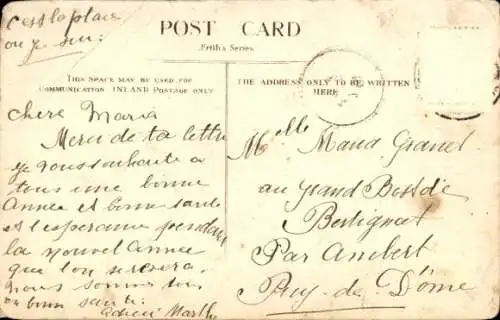 c'est la place
ou je suis
POST CARD
Frith's Series
THIS SPACE MAY BE USED FOR
COMMUNICATION INLAND POSTAGE ONLY
THE ADDRESS ONLY TO BE WRITTEN
HERE
chere Maria
Merci de ta lettre
je vous souhaite a
tous une bonne
annee et bonne sante
et l'esperance pendant
la nouvel Annee
que l'on se
nous sommes tous
en bonne sante
adieu Marthe
Melle Maria Granet
au grand Bost de
Bertignat
Par Ambert
Puy-de-Dôme